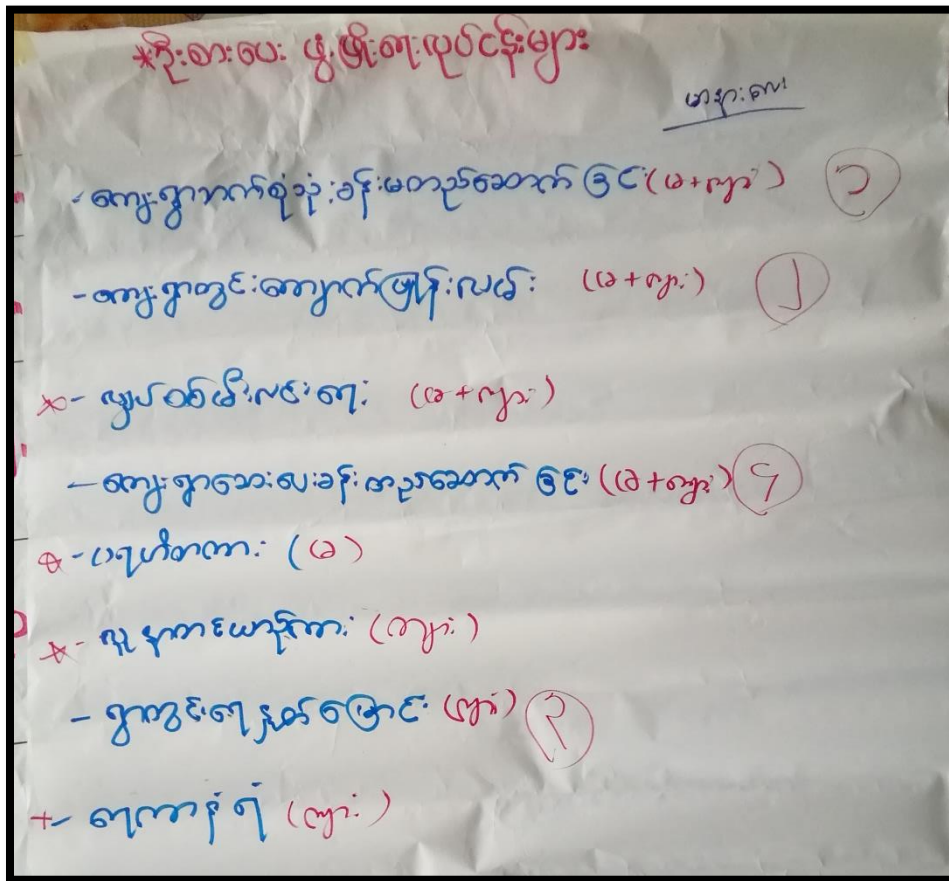 *ဦးစားပေး ဖွံ့ဖြိုးရေးလုပ်ငန်းများ
- ကျေးရွာဘက်စုံသုံးခန်းမတည်ဆောက်ခြင်း (မ+ကျား) ၁
- ကျေးရွာတွင်းကျောက်ဖြုန်းလမ်း (မ+ကျား) ၂
× - လျှပ်စစ်မီးလင်းရေး (မ+ကျား)
- ကျေးရွာဆေးပေးခန်းတည်ဆောက်ခြင်း (မ+ကျား) ၄
* - ပရဟိတကား (မ)
* - လူနာတင်ယာဉ်ကား (ကျား)
- ရွာတွင်းရေနုတ်မြောင်း (ကျား) ၃
+ - ရေကာနံရံ (ကျား)